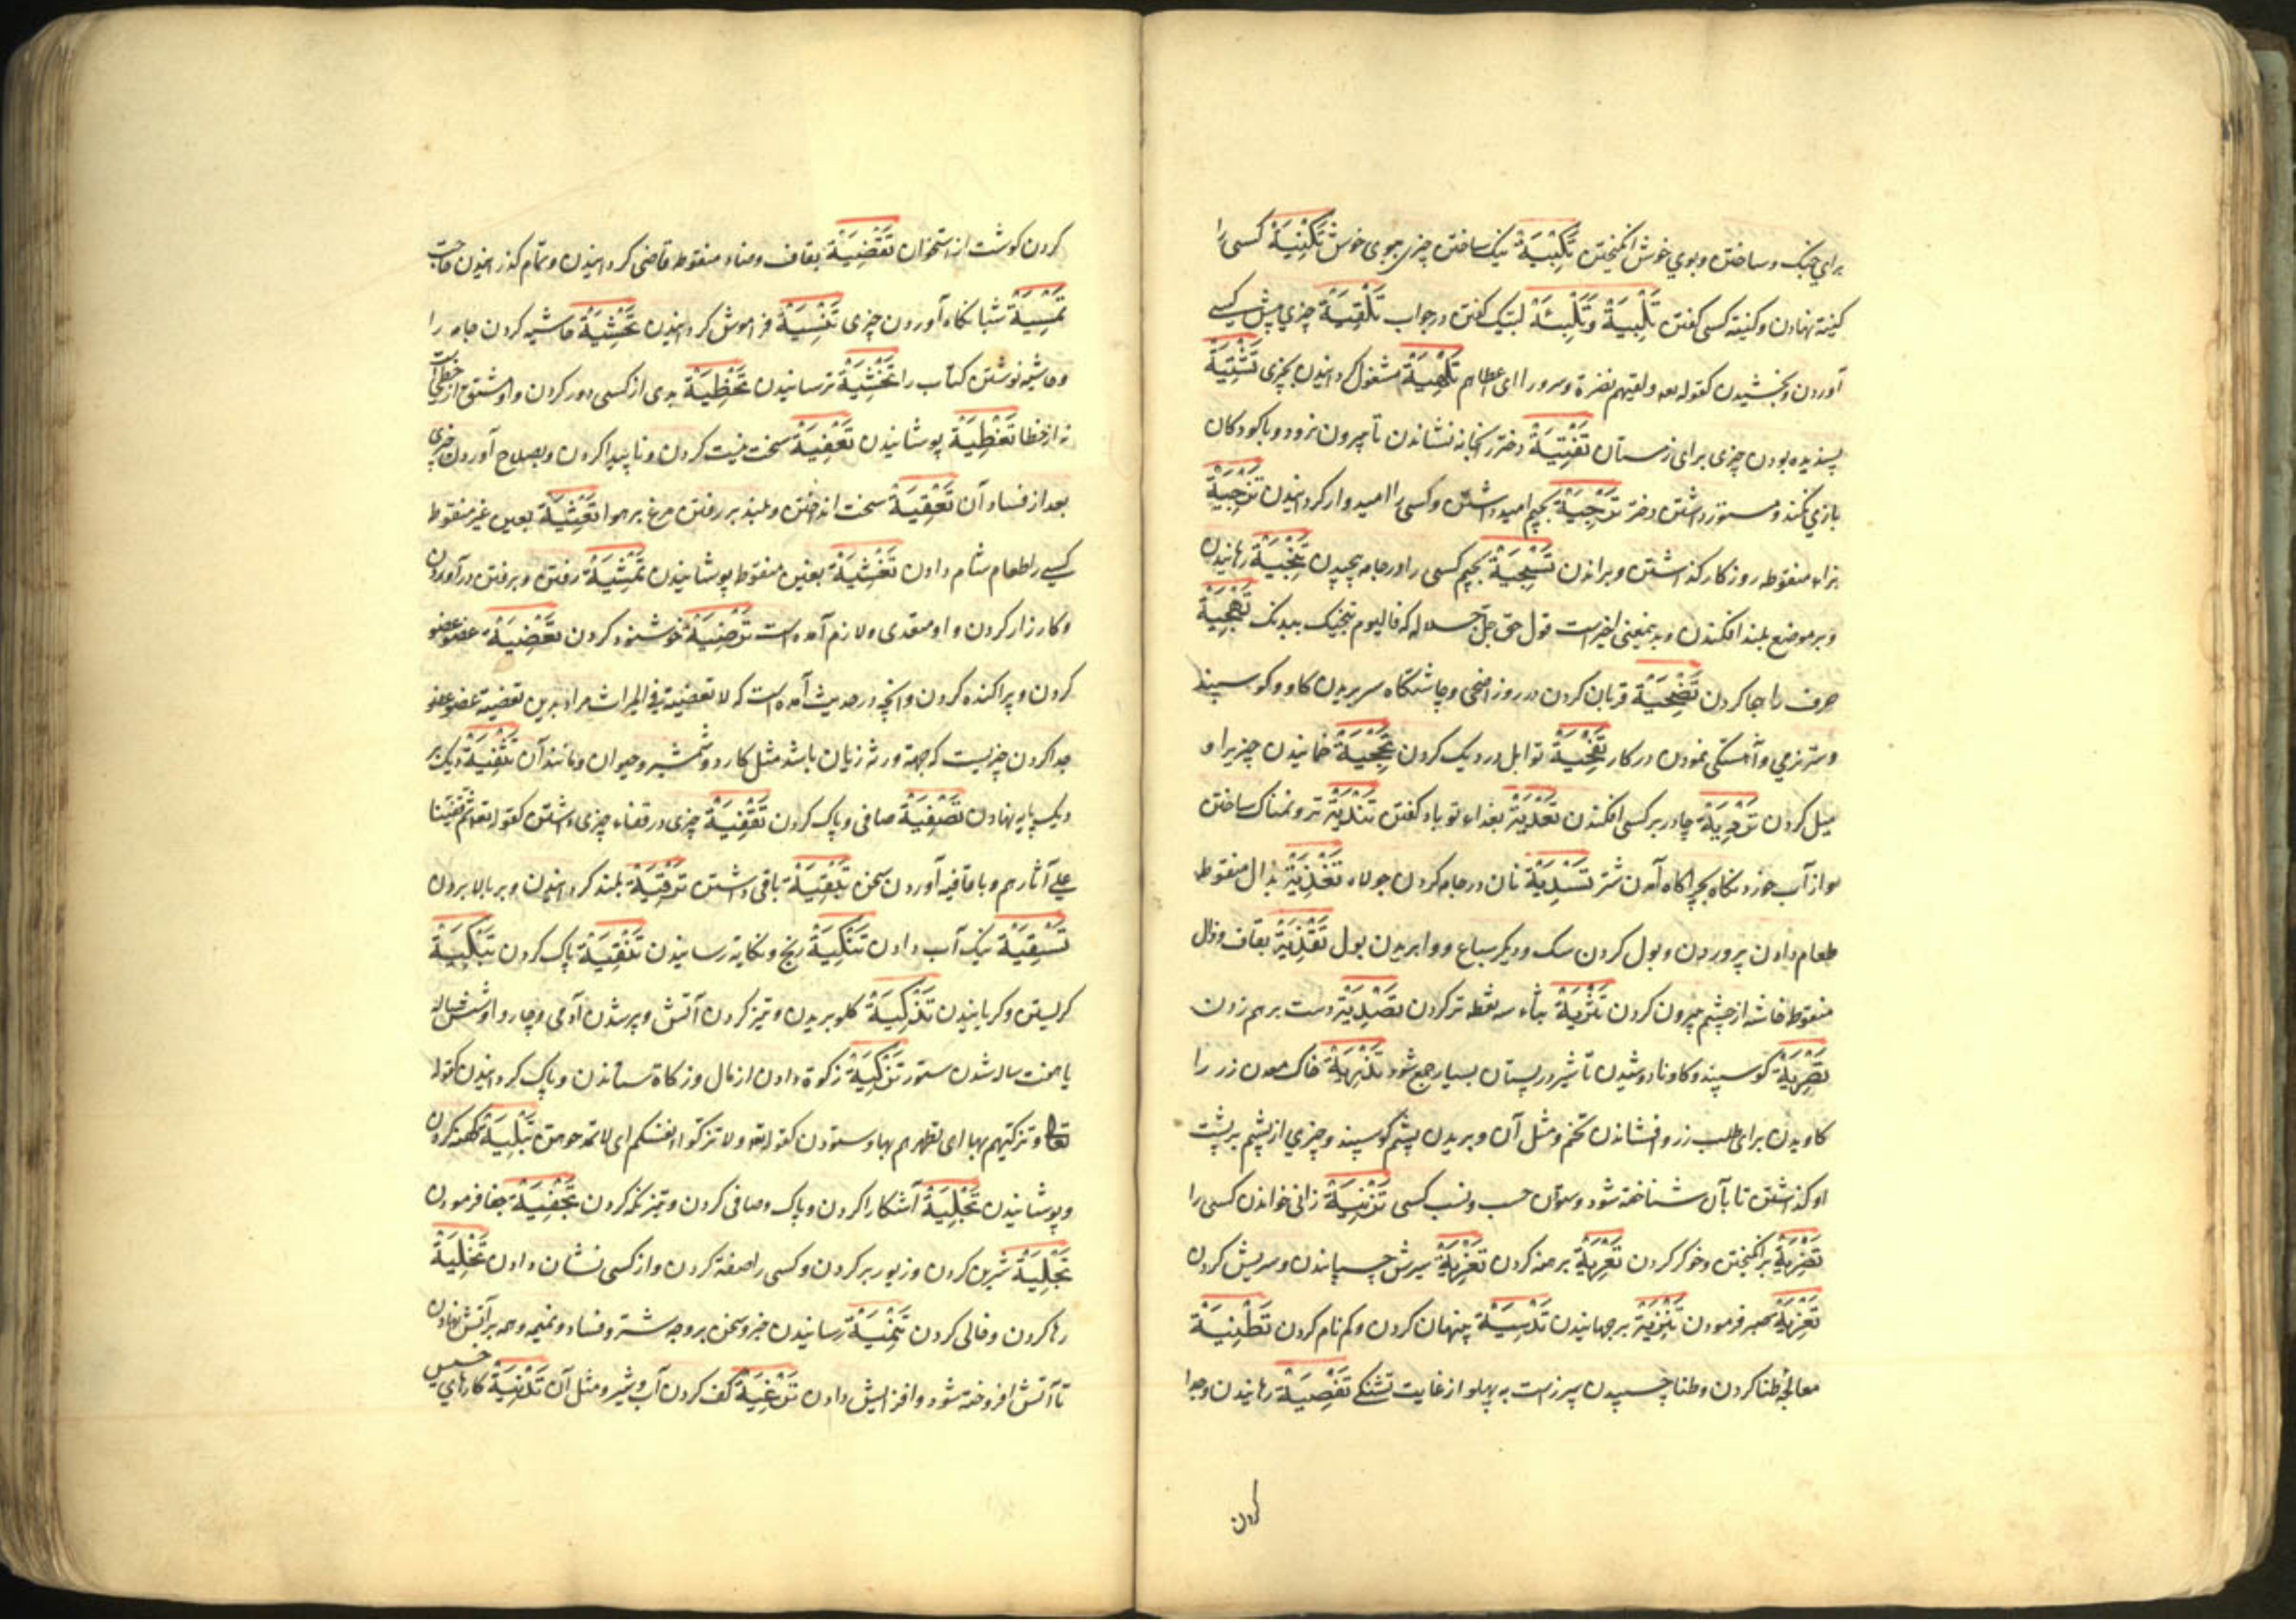 برای جنک و ساختن و بوی خوش انکیختن تَكْبِيَةٌ نیک ساختن چیزی ببوی خوش تَكْنِيَةٌ کسی را
کنیت نهادن و کنیته کسی کفتن تَلْبِيَةٌ وَتَلْبِئَةٌ لبیک کفتن در جواب تَلْقِيَةٌ چیزی پیش کسی
آوردن و بخشیدن کقوله تعه ولقیهم نضرة وسرورا ای اعطاهم تَلْهِيَةٌ مشغول کردانیدن بچیزی تَشْتِيَةٌ
پسندیده بودن چیزی برای زمستان تَفْتِيَةٌ دختر را بخانه نشاندن تا بیرون نرود و با کودکان
بازی نکند و مستور داشتن دختر تَرْجِيَةٌ بجیم امید داشتن و کسی را امیدوار کردانیدن تَزْجِيَةٌ
بزاء منقوطه روزکار کذاشتن و براندن تَسْجِيَةٌ بجیم کسی را در جامه پیچیدن تَنْجِيَةٌ رهانیدن
و بر موضع بلند افکندن و بدینمعنی اخیر است قول حق جل جلاله که فالیوم ننجیک ببدنک تَهْجِيَةٌ
حرف را هجا کردن تَضْحِيَةٌ قربان کردن در روز اضحی و چاشتکاه سر بریدن کاو و کوسپند
و ستر نرمی و آهستکی نمودن در کار تَفْحِيَةٌ توابل در دیک کردن تَجْخِيَةٌ خمانیدن چیزیرا و
میل کردن تَرْدِيَةٌ چادر بر کسی افکندن تَفْدِيَةٌ بفداء تو باد کفتن تَنْدِيَةٌ تر و نمناک ساختن
و از آب خورد نکاه بچراکاه آمدن شتر تَسْدِيَةٌ تان در جامه کردن جولاه تَغْذِيَةٌ بذال منقوط
طعام دادن پروردن و بول کردن سک و دیکر سباع و وا بریدن بول تَقْذِيَةٌ بقاف و ذال
منقوط خاشه از چشم بیرون کردن تَثْرِيَةٌ بثاء سه نقطه تر کردن تَصْدِيَةٌ دست بر هم زدن
تَصْرِيَةٌ کوسپند و کاو نادوشیدن تا شیر در پستان بسیار جمع شود تَذْرِيَةٌ خاک معدن زر را
کاویدن برای طلب زر و افشاندن تخم و مثل آن و بریدن پشم کوسپند و چیزی از پشم بر پشت
او کذاشتن تا بآن شناخته شود و ستودن حسب و نسب کسی تَزْنِيَةٌ زانی خواندن کسی را
تَضْرِيَةٌ برانکیختن و خوکر کردن تَعْرِيَةٌ برهنه کردن تَغْرِيَةٌ سرش چسپانیدن و سریش کردن
تَعْزِيَةٌ صبر فرمودن تَنْزِيَةٌ برجهانیدن تَدْسِيَةٌ پنهان کردن و کم نام کردن تَطْنِيَةٌ
معالجه طنا کردن و طنا چسپیدن سپرز است به پهلو از غایت تشنکی تَفْصِيَةٌ رهانیدن و جدا
کردن
کردن کوشت از استخوان تَقْضِيَةٌ بقاف و ضاد منقوط قاضی کردانیدن و تمام کذرانیدن حاجت
تَمْسِيَةٌ شبانکاه آوردن چیزی تَنْسِيَةٌ فراموش کردانیدن تَحْشِيَةٌ حاشیه کردن جامه را
و حاشیه نوشتن کتاب را تَخْشِيَةٌ ترسانیدن تَخْطِيَةٌ بدی از کسی دور کردن و او مشتق از
نه از خطا تَغْطِيَةٌ پوشانیدن تَعْفِيَةٌ سخت نیست کردن و ناپیدا کردن و بصلاح آوردن چیزی
بعد از فساد آن تَعْقِيَةٌ سخت انداختن و بلند بر رفتن مرغ بر هوا تَعْشِيَةٌ بعین غیر منقوط
کسی را طعام شام دادن تَغْشِيَةٌ بغین منقوط پوشانیدن تَمْشِيَةٌ رفتن و برفتن درآوردن
و کارزار کردن و او متعدی و لازم آمده است تَرْضِيَةٌ خوشنود کردن تَعْضِيَةٌ عضو عضو
کردن و پراکنده کردن و آنچه در حدیث آمده است که لا تعضیة فی المیراث مراد بدین تعضیة عضو عضو
جدا کردن چیزیست که جهة ورثه زیان باشد مثل کارد و شمشیر و حیوان و مانند آن تَثْفِيَةٌ دیک بر
دیک پایه نهادن تَصْفِيَةٌ صافی و پاک کردن تَقْفِيَةٌ چیزی در قفاء چیزی داشتن کقوله تعه ثم قفینا
علی آثارهم و با قافیه آوردن سخن تَبْقِيَةٌ باقی داشتن تَرْقِيَةٌ بلند کردانیدن و بر بالا بردن
تَسْقِيَةٌ نیک آب دادن تَنْكِيَةٌ رنج و نکایة رسانیدن تَنْقِيَةٌ پاک کردن تَبْكِيَةٌ
کریستن و کریانیدن تَذْكِيَةٌ کلو بریدن و تیز کردن آتش و پیر شدن آدمی و چاروا و شش ساله
یا هفت ساله شدن ستور تَزْكِيَةٌ زکوة دادن از مال و زکاة ستاندن و پاک کردانیدن کقوله
تعا وتزکیهم بها ای تطهرهم بها و ستودن کقوله تعه ولا تزکوا انفسکم ای لا تمدحوهن تَبْلِيَةٌ کهنه کردن
و پوشانیدن تَجْلِيَةٌ آشکارا کردن و پاک و صافی کردن و تیز نکه کردن تَجْفِيَةٌ جفا فرمودن
تَحْلِيَةٌ شیرین کردن و زیور بر کردن و کسی را صفة کردن و از کسی نشان دادن تَخْلِيَةٌ
رها کردن و خالی کردن تَنْمِيَةٌ رسانیدن خبر و سخن بر وجه شر و فساد و نمیمه و همه بر آتش نهادن
تا آتش افروخته شود و افزایش دادن تَرْغِيَةٌ کف کردن آب و شیر و مثل آن تَدْنِيَةٌ کارهای خسیس